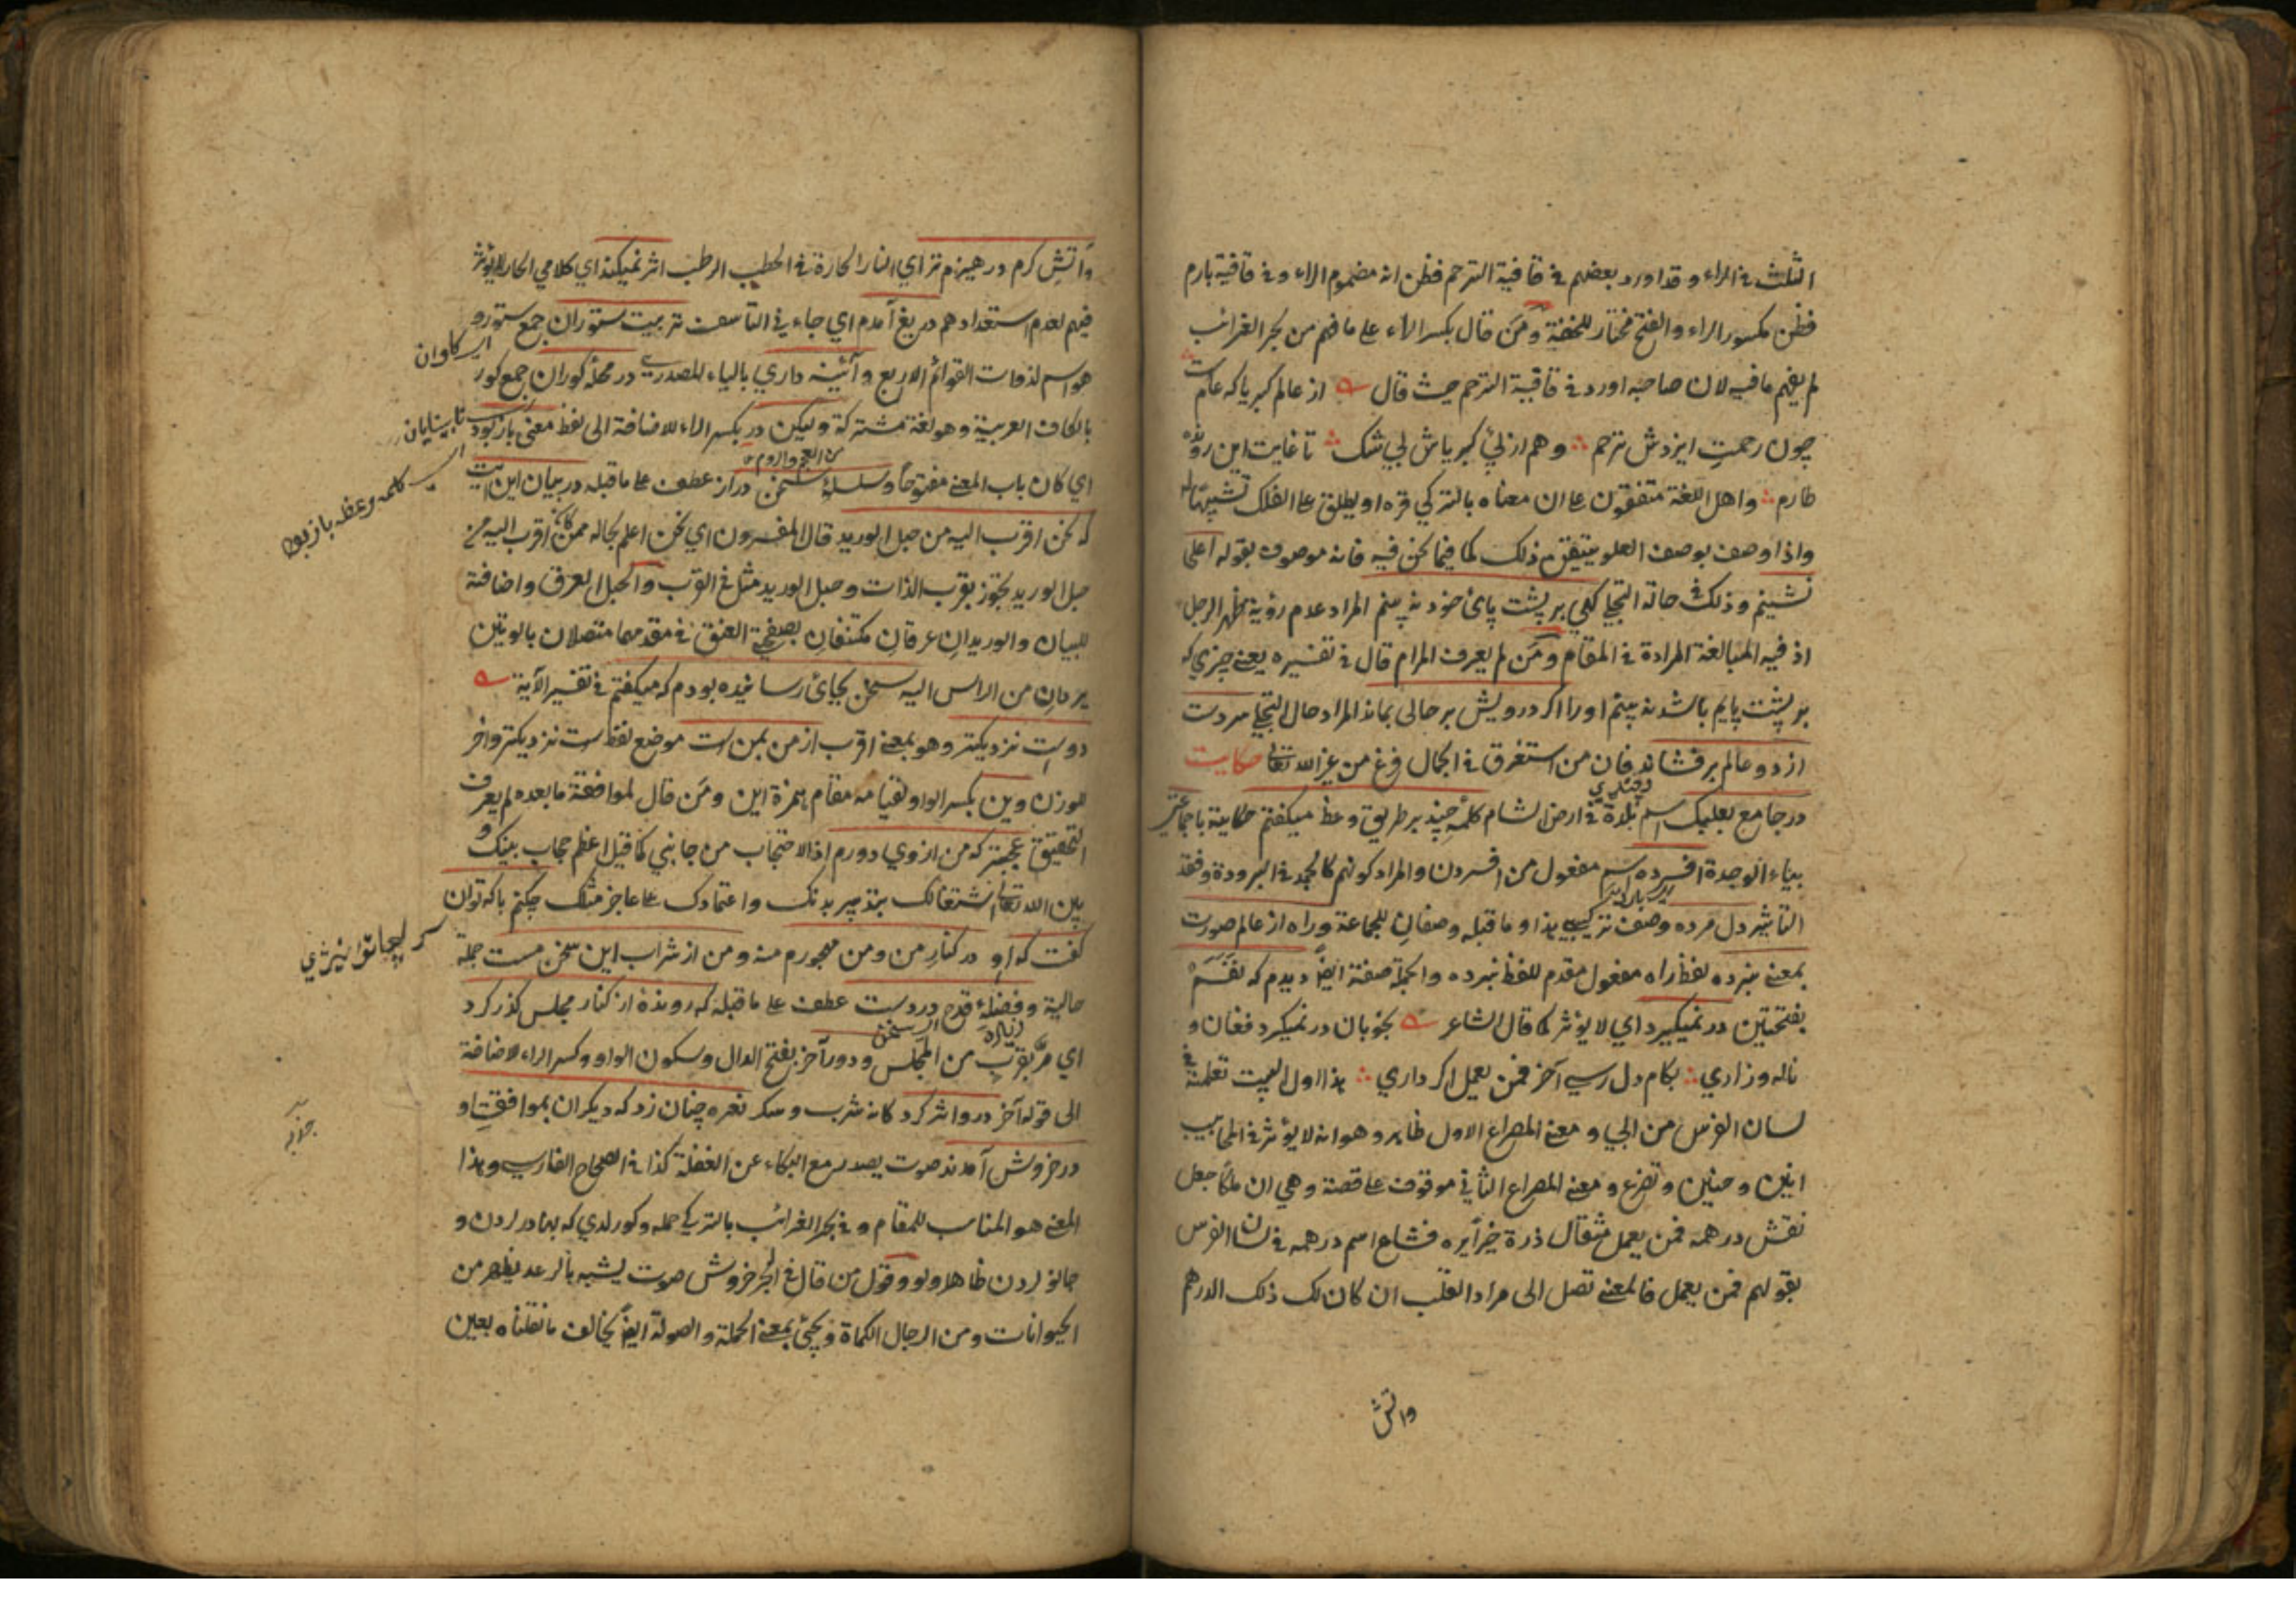 الثلث في الراء وقد اورد بعضهم في قافية الترحم فظن انه مضموم الراء وفي قافية بارم
فظن مكسور الراء والفتح مختار للخفة ومن قال بكسر الراء على ما فهم من بحر الغرائب
لم يفهم ما فيه لان صاحبه اورد في قافية الترحم حيث قال از عالم كبريا كه عامست
چون رحمت ايزدش ترحم وهم ازلئ كبرياش لي شك تا غايت اين
طارم واهل اللغة متفقون على ان معناه بالتركي قره او يطلق على الفلك تشبيها له
واذا وصف بوصف العلو يتيقن ذلك كما فيما نحن فيه فانه موصوف بقوله اعلى
نشينم وذلك في حالة التجلي كهي بر پشت پائ خود نه بينم المراد عدم رؤية ظهر الرجل
اذ فيه المبالغة المرادة في المقام ومن لم يعرف المرام قال في تفسيره يعني چيزي كه
بر پشت پايم باشد نه بينم اورا اكر درويش بر حالى بماند المراد حال التجلي سردست
از دو عالم برفشاند فان من استغرق في الجمال فرغ من غير الله تعالى حكايت
در جامع بعلبك اسم بلدة في ارض الشام كلمۀ چند بر طريق وعظ ميكفتم حكاية با جماعتي
بياء الوحدة افسرده اسم مفعول من افسردن والمراد كونهم كالجمد في البرودة وفقد
التأثير دل مرده وصف تركيبي هذا وما قبله وصفان للجماعة وراه از عالم صورت
بمعنى نبرده لفظ راه مفعول مقدم للفظ نبرده والجملة صفة ايضا ديدم كه نفسم
بفتحتين در نميكيرد اي لا يؤثر كما قال الشاعر بخوبان در نميكرد فغان و
ناله وزاري بكام دل رسي آخر فمن يعمل اكر داري هذا اول البيت تعلمته في
لسان الفرس من الجي ومعنى المصراع الاول ظاهر وهو انه لا يؤثر في المحابيب
انين وحنين وتضرع ومعنى المصراع الثاني موقوف على قصة وهي ان ملكا جعل
نقش درهمه فمن يعمل مثقال ذرة خيرا يره فشاع اسم درهمه في لسان الفرس
بقولهم فمن يعمل فالمعنى تصل الى مراد القلب ان كان لك ذلك الدرهم
واتش
وآتش كرم در هيزم تر اي النار الحارة في الحطب الرطب اثر نميكند اي كلامي الحار لا يؤثر
فيهم لعدم استعدادهم دريغ آمدم اي جاء في التأسف تربيت ستوران جمع ستور و
هو اسم لذوات القوائم الاربع وآئينه داري بالياء المصدري در محلۀ كوران جمع كور
بالكاف العربية وهو لغة مشتركة وليكن در بكسر الراء للاضافة الى لفظ معنى باز بود
اي كان باب المعنى مفتوحا وسلسلۀ سخن دراز عطف على ما قبله در بيان اين آيت
كه نحن اقرب اليه من حبل الوريد قال المفسرون اي نحن اعلم بحاله ممن كان اقرب اليه من
حبل الوريد تجوز بقرب الذات وحبل الوريد مثل في القرب والحبل العرق واضافته
للبيان والوريدان عرقان مكتنفان بصفحتي العنق في مقدمها متصلان بالوتين
يردان من الراس اليه سخن بجائ رسانيده بودم كه ميكفتم في تفسير الآية
دوست نزديكتر وهو بمعنى اقرب از من بمن است موضع لفظ است نزديكتر واخر
للوزن وين بكسر الواو لقيامه مقام همزة اين ومن قال لموافقة ما بعده لم يعرف
التحقيق عجبتر كه من از وي دورم اذ الاحتجاب من جانبي كما قيل اعظم حجاب بينك و
بين الله تعالى اشتغالك بتدبير بدنك واعتمادك على عاجز مثلك چكنم با كه توان
كفت كه او در كنار من ومن مهجورم منه ومن از شراب اين سخن مست جملة
حالية وفضلۀ قدح در دست عطف على ما قبله كه روندۀ از كنار مجلس كذر كرد
اي مر بقرب من المجلس ودور آخر بفتح الدال وسكون الواو وكسر الراء للاضافة
الى قوله آخر درو اثر كرد كانه شرب وسكر نعره چنان زد كه ديكران بموافقت او
در خروش آمدند صوت يصدر مع البكاء عن الغفلة كذا في الصحاح الفارسي وهذا
المعنى هو المناسب للمقام وفي بحر الغرائب بالتركي حمله وكورلدي كه بهادرلردن و
جانورلردن ظاهر اولور وقول من قال في الجر خروش صوت يشبه بالرعد يظهر من
الحيوانات ومن الرجال الكماة ويجئ بمعنى الحملة والصولة ايضا يخالف ما نقلناه بعين
اي كاوان
اي نابينايان
كلمه وعظه باز بود
من العجم والروم